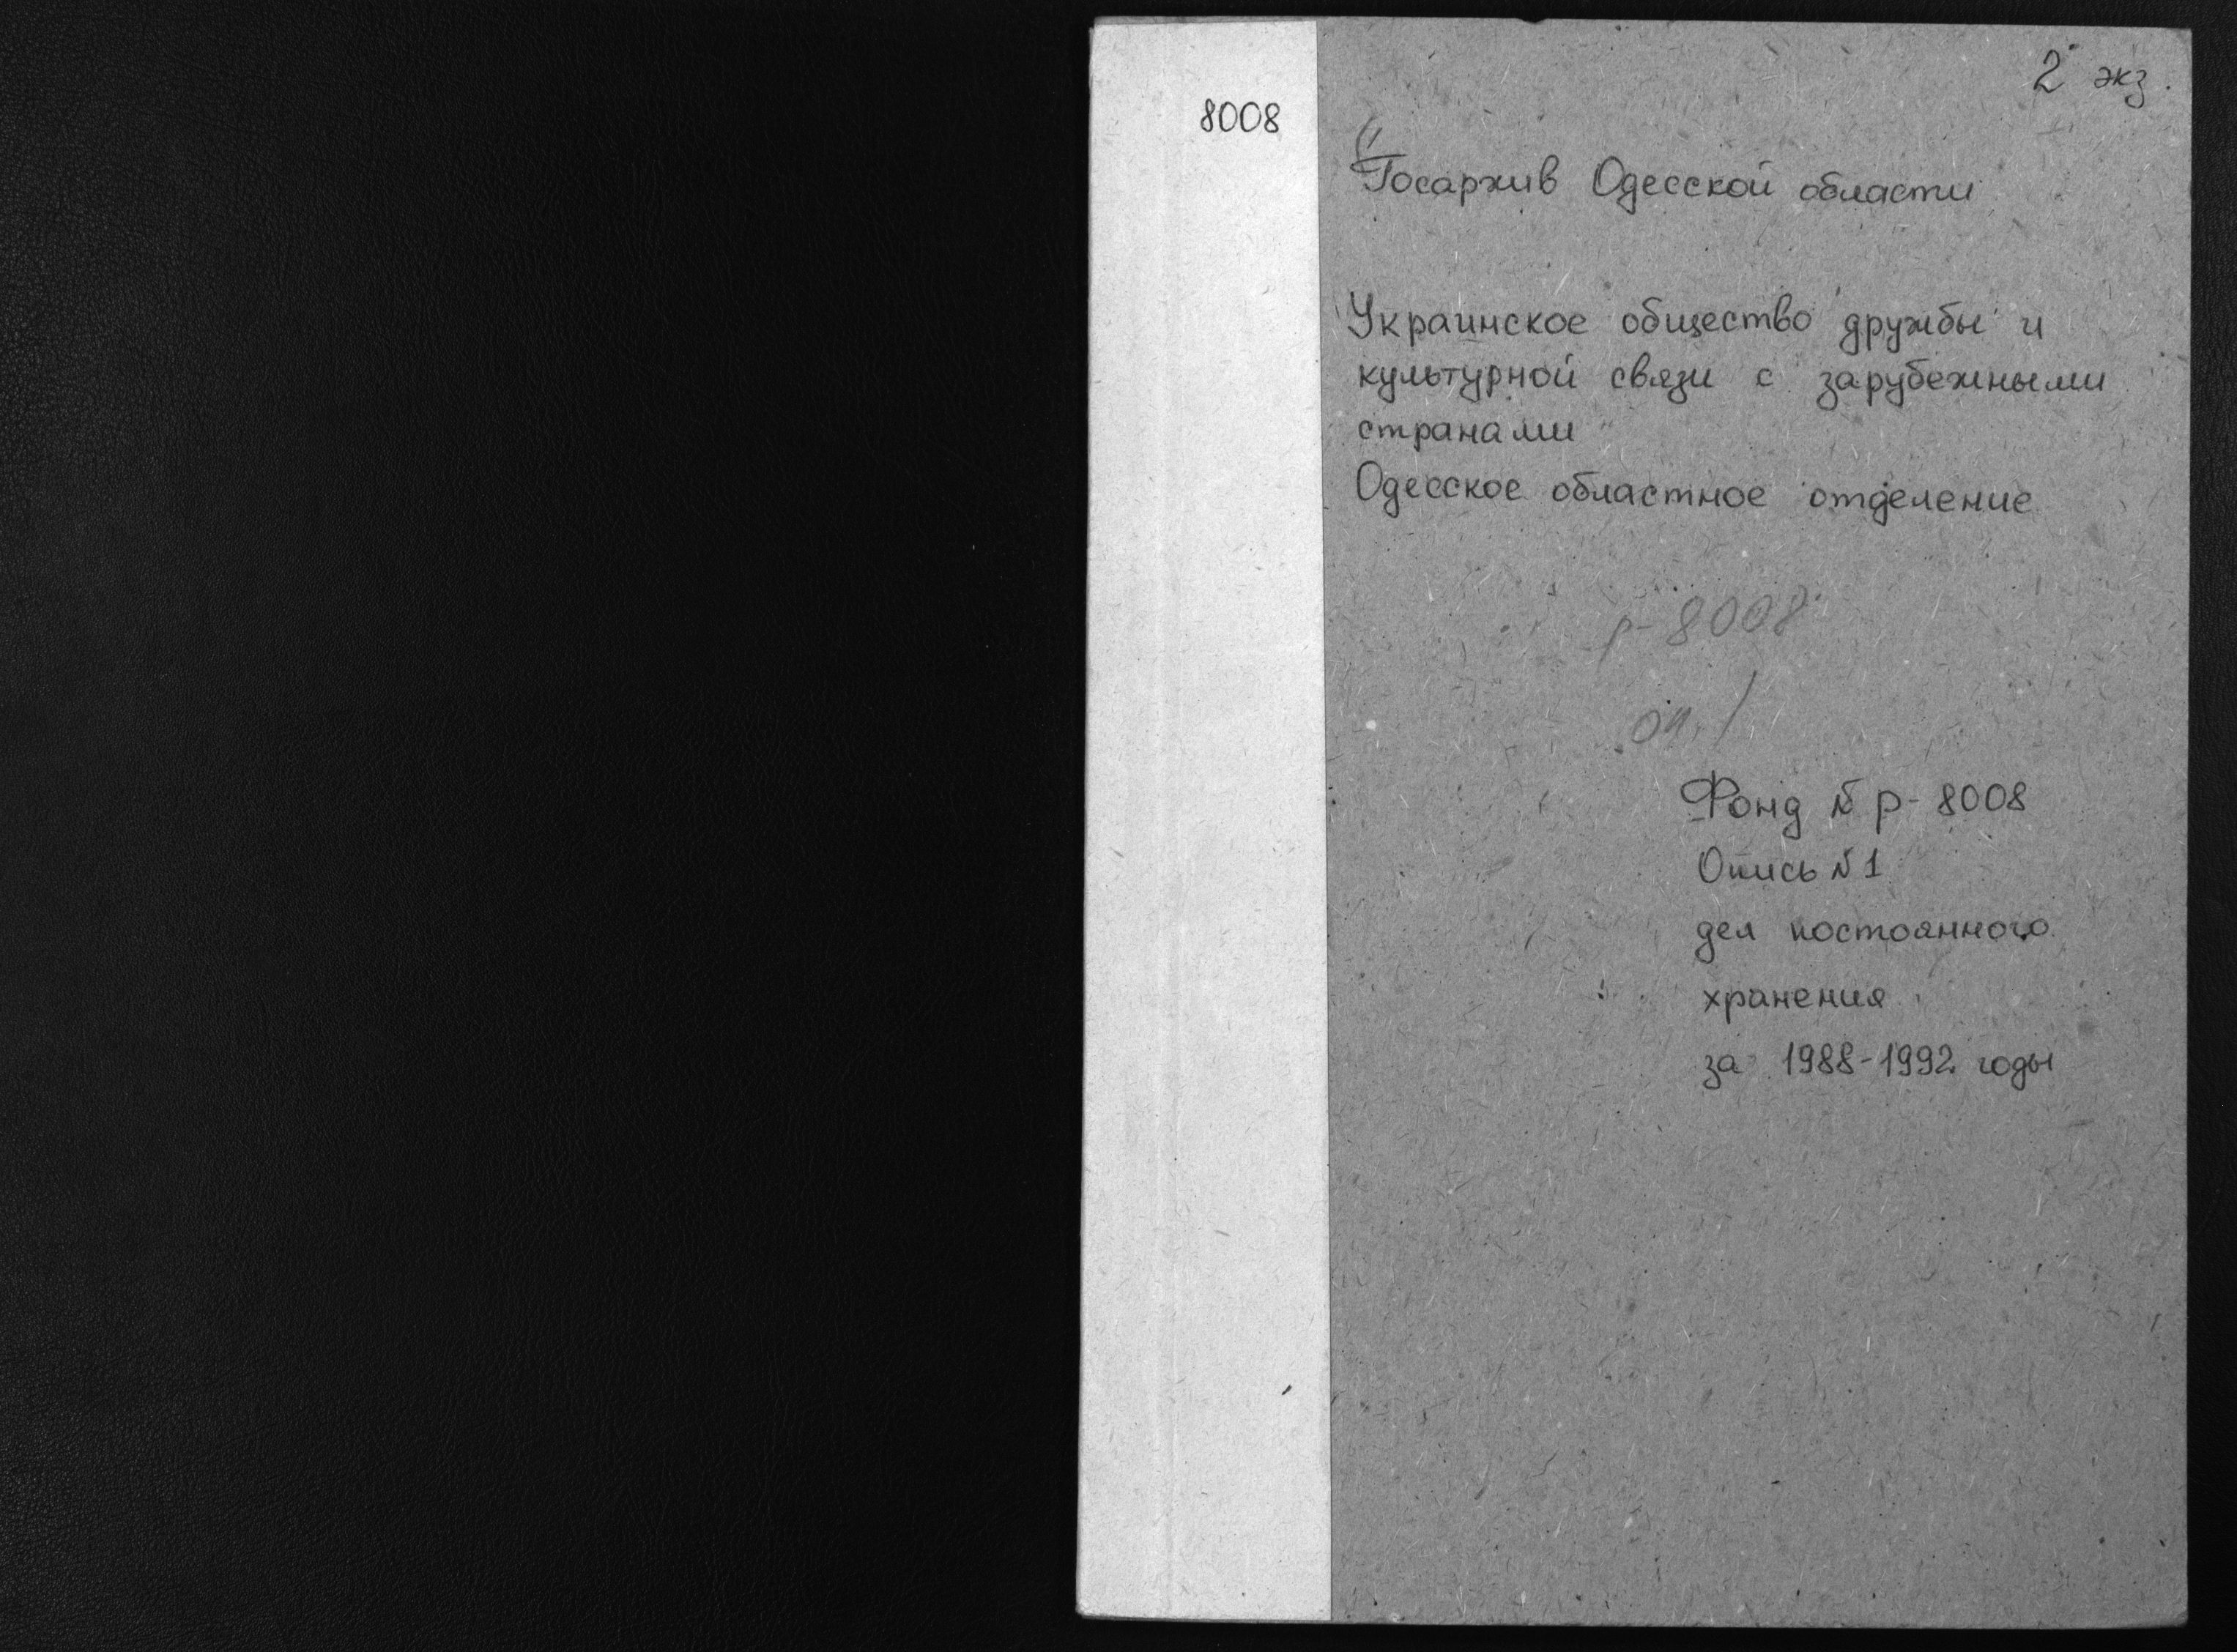 2 экз.
8008
Госархив Одесской области
Украинское общество дружбы и
культурной связи с зарубежными
странами
Одесское областное отделение
р-8008
оп. 1
Фонд № р-8008
Опись №1
дел постоянного
хранения
за 1988-1992 годы